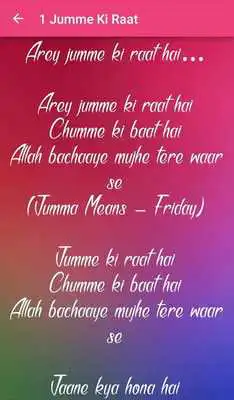 1 Jumme Ki Raat
Arey jumme ki raat hai...
Arey jumme ki raat hai
Chumme ki baat hai
Allah bachaaye mujhe tere waar
se
(Jumma Means – Friday)
Jumme ki raat hai
Chumme ki baat hai
Allah bachaaye mujhe tere waar
se
Jaane kya hona hai